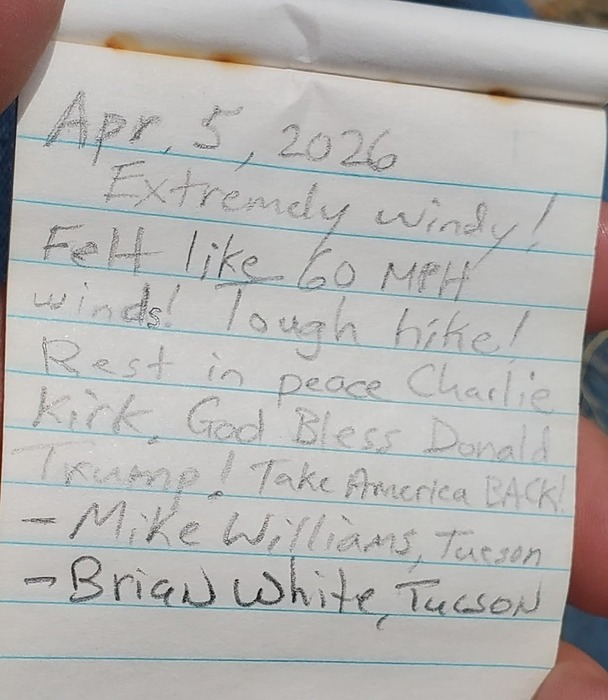 Apr. 5, 2026
Extremely windy!
Felt like 60 MPH
winds! Tough hike!
Rest in peace Charlie
Kirk. God Bless Donald
Trump! Take America BACK!
- Mike Williams, Tucson
- Brian White, Tucson